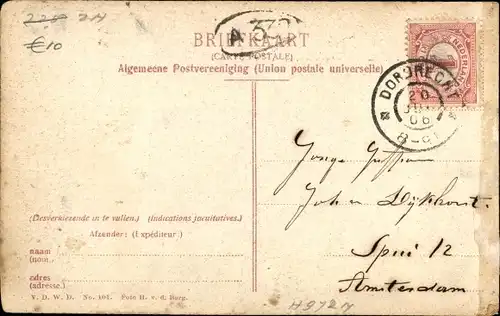 220 2N
€10
A 32
BRIEFKAART
(CARTE POSTALE)
Algemeene Postvereeniging (Union postale universelle)
NEDERLAND
DORDRECHT
20
06
Jonge Juffrouw
Joh Dijkhorst.
Spui 12
Amsterdam
(Desverkiezende in te vullen.) (Indications facultatives.)
Afzender: (Expéditeur.)
naam
(nom.)
adres
(adresse.)
V. D. W. D. No. 101. Foto H. v. d. Burg.
H972N